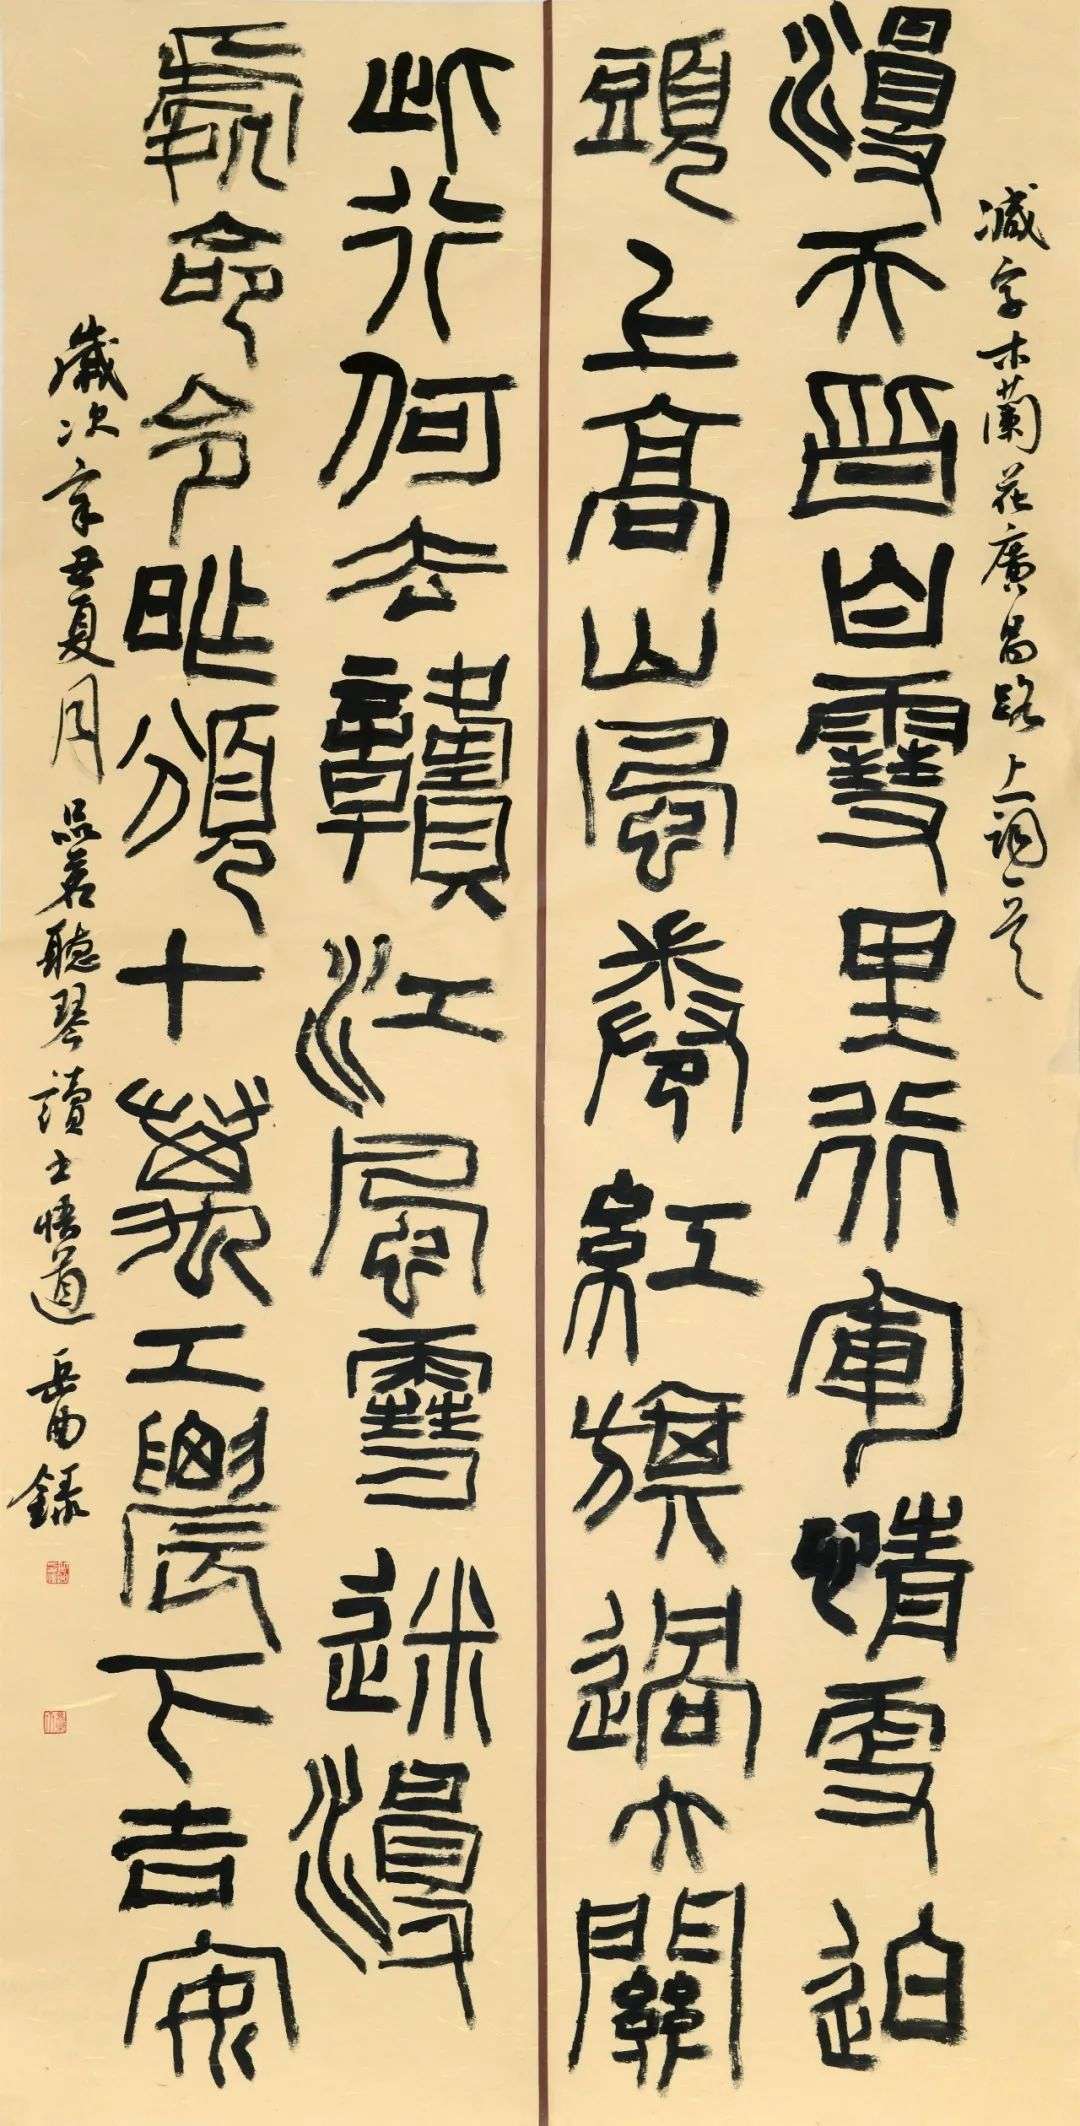 減字木蘭花廣昌路上詞一首
漫天皆白雪里行軍情更迫
頭上高山風卷紅旗過大關
此行何去贛江風雪迷漫
處命令昨頒十萬工農下吉安
歲次辛丑夏月品茗聽琴讀書悟道岳曲錄